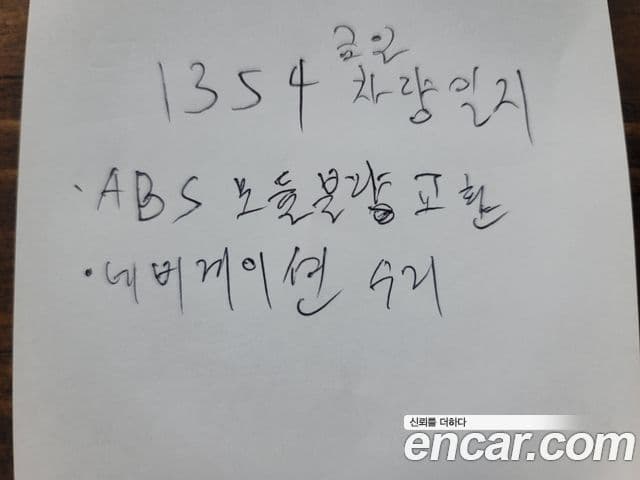 금일
1354 차량일지
· ABS 모듈불량 교환
· 네비게이션 수리
신뢰를 더하다
encar.com